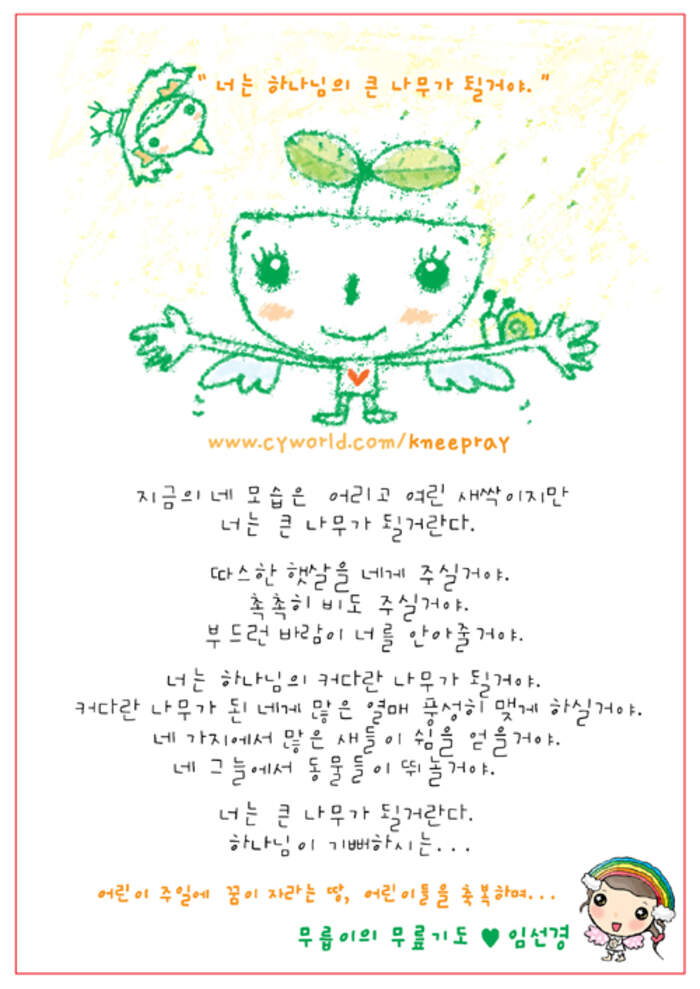 " 너는 하나님의 큰 나무가 될거야. "
www.cyworld.com/kneepray
지금의 네 모습은 어리고 여린 새싹이지만
너는 큰 나무가 될거란다.
따스한 햇살을 네게 주실거야.
촉촉히 비도 주실거야.
부드런 바람이 너를 안아줄거야.
너는 하나님의 커다란 나무가 될거야.
커다란 나무가 된 네게 많은 열매 풍성히 맺게 하실거야.
네 가지에서 많은 새들이 쉼을 얻을거야.
네 그늘에서 동물들이 뛰놀거야.
너는 큰 나무가 될거란다.
하나님이 기뻐하시는...
어린이 주일에 꿈이 자라는 땅, 어린이들을 축복하며...
무릎이의 무릎기도 ♥ 임선경